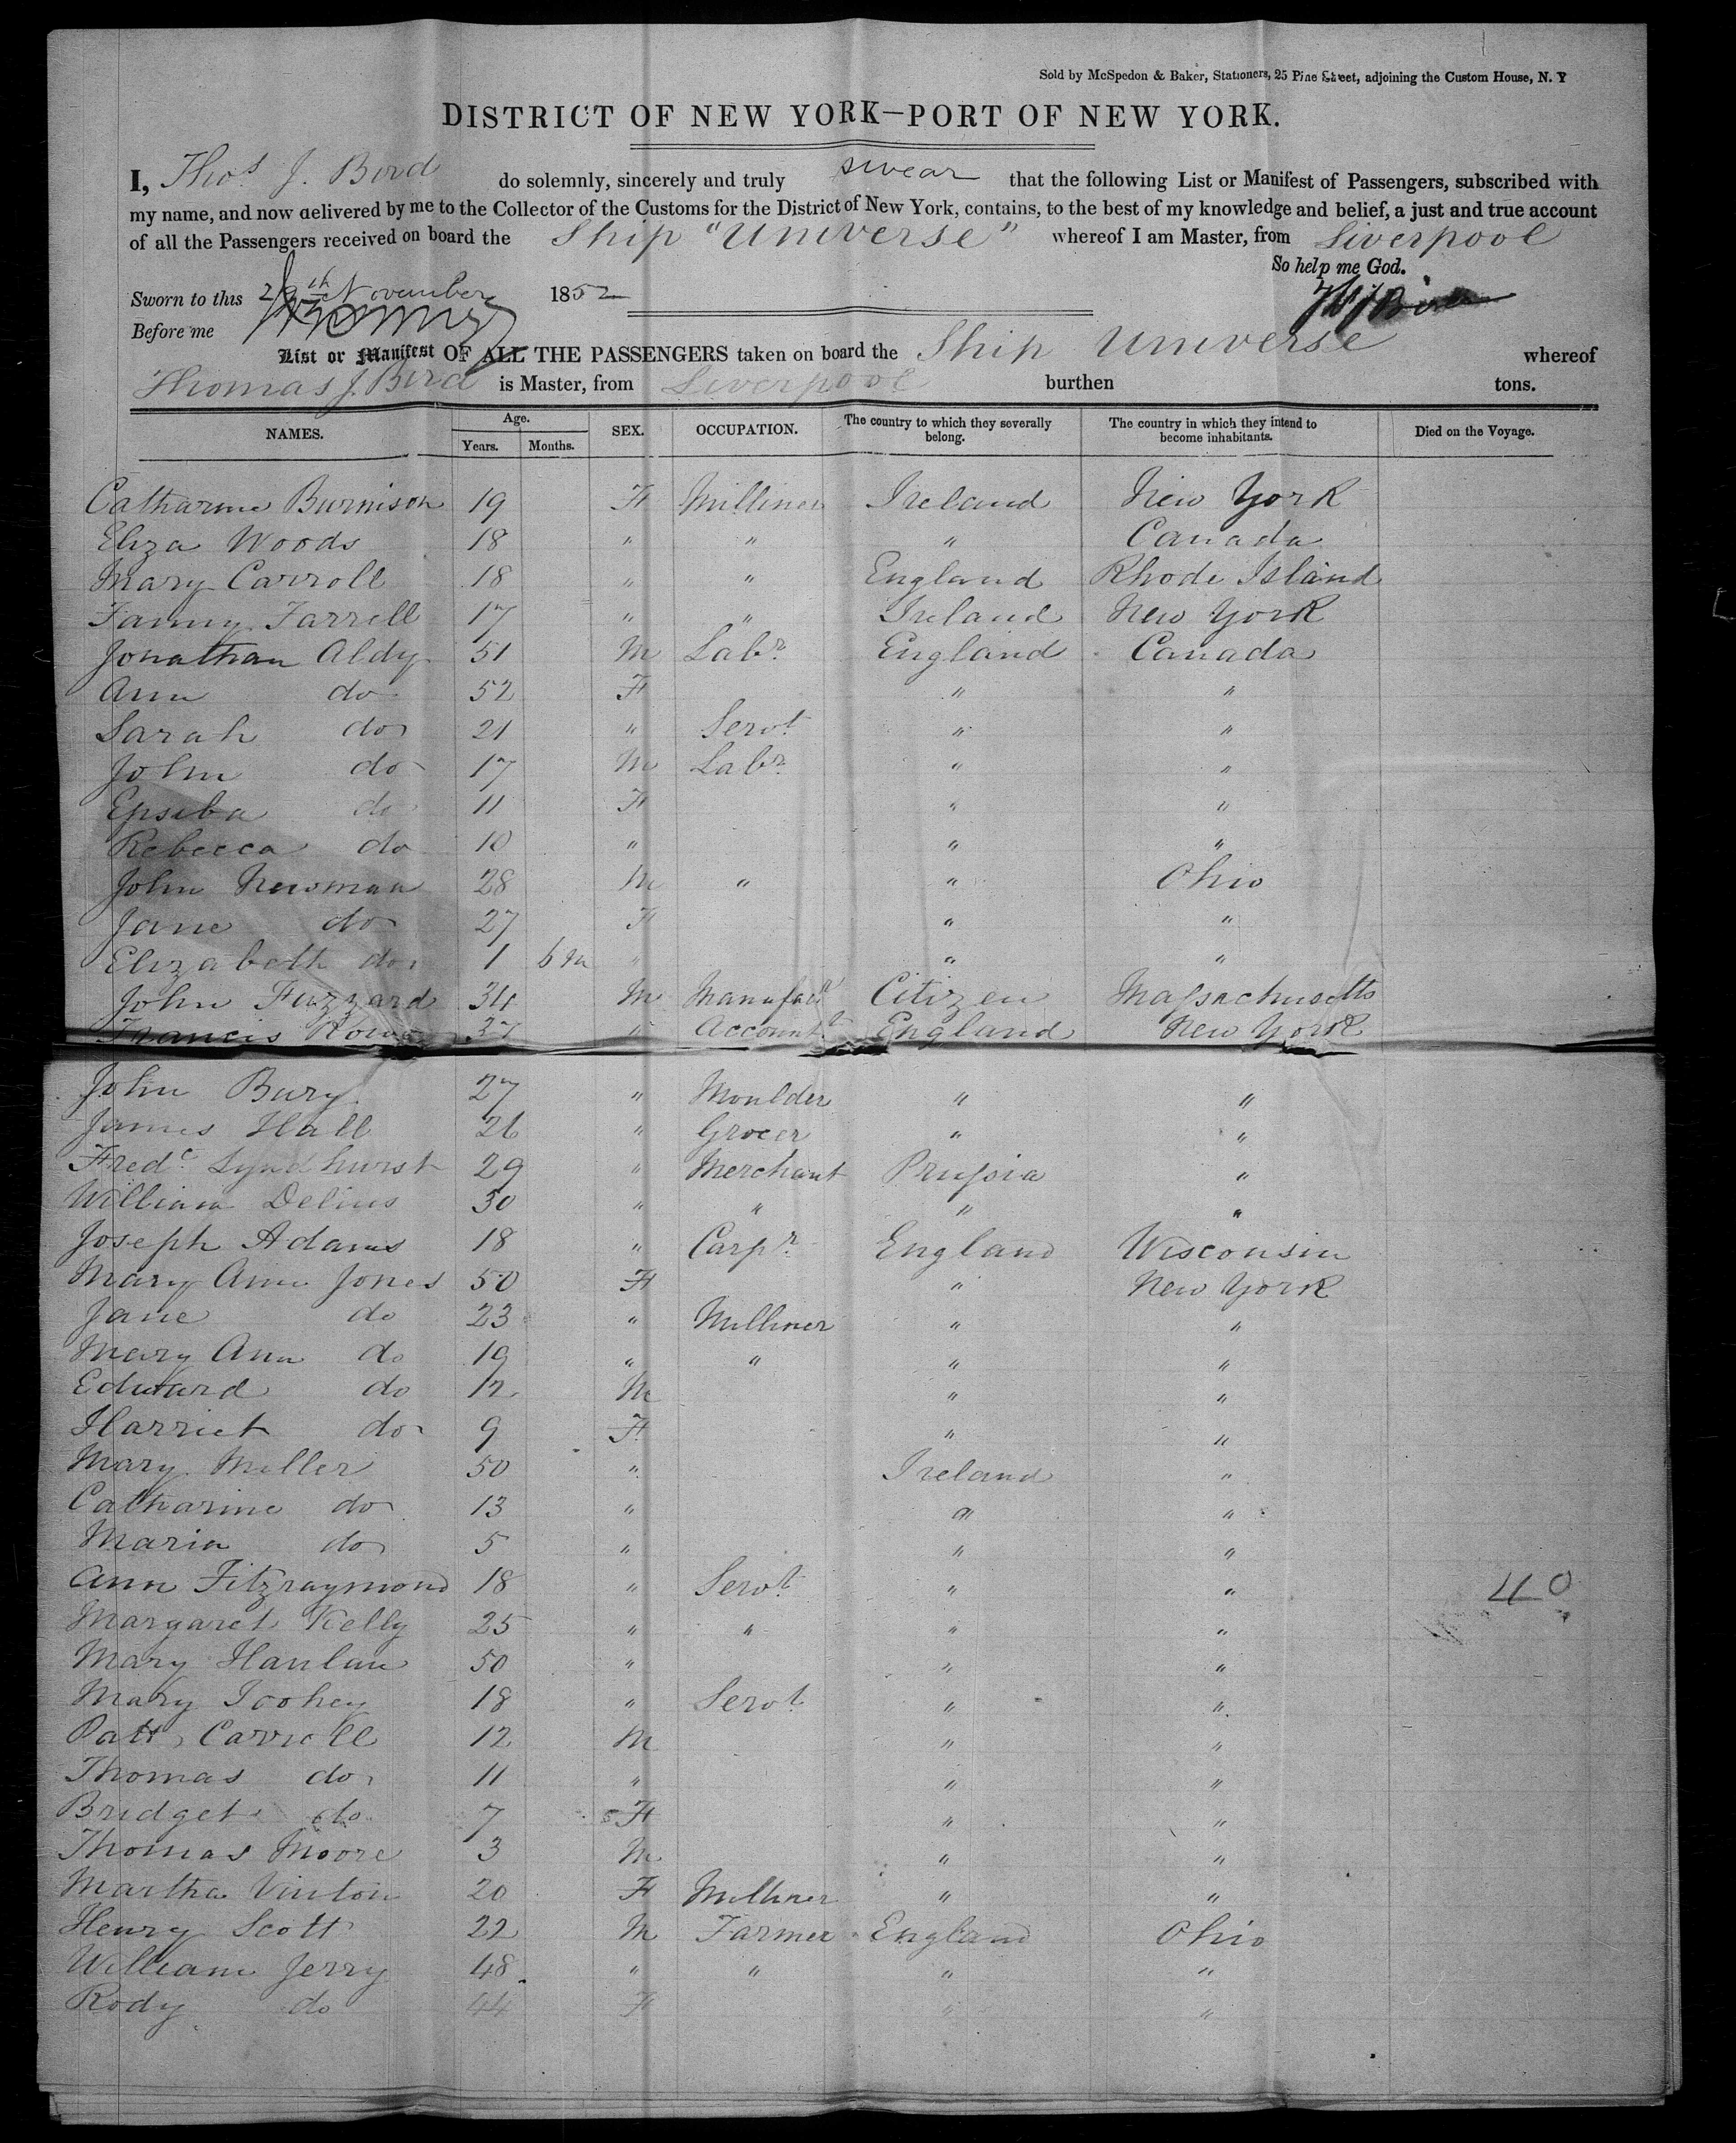 Sold by McSpedon & Baker, Stationers, 25 Pine Street, adjoining the Custom House, N. Y
DISTRICT OF NEW YORK—PORT OF NEW YORK.
I, Thos. J. Bird do solemnly, sincerely and truly swear that the following List or Manifest of Passengers, subscribed with
my name, and now delivered by me to the Collector of the Customs for the District of New York, contains, to the best of my knowledge and belief, a just and true account
of all the Passengers received on board the Ship "Universe" whereof I am Master, from Liverpool
So help me God.
Sworn to this November 1852
Before me
List or Manifest OF ALL THE PASSENGERS taken on board the Ship Universe whereof
Thomas J. Bird is Master, from Liverpool burthen tons.
NAMES. Age. Years. Months. SEX. OCCUPATION. The country to which they severally belong. The country in which they intend to become inhabitants. Died on the Voyage.
Catharine Burnison 19 F Milliner Ireland New York
Eliza Woods 18 " " " Canada
Mary Carroll 18 " " England Rhode Island
Fanny Farrell 17 " " Ireland New York
Jonathan Aldy 51 M Labr. England Canada
Ann do 52 F " "
Sarah do 21 " Servt. " "
John do 17 M Labr. " "
Epsiba do 11 F " "
Rebecca do 10 " " "
John Newman 28 M " " Ohio
Jane do 27 F " "
Elizabeth do 1 6 m " " "
John Fuzzard 34 M Manufacr Citizen Massachusetts
Francis 37 " Accountt England New York
John Bury 27 " Moulder " "
James Hall 26 " Grocer " "
Fredc. Lyndhurst 29 " Merchant Prussia "
William Delius 30 " " " "
Joseph Adams 18 " Carpr. England Wisconsin
Mary Ann Jones 50 F " New York
Jane do 23 " Milliner " "
Mary Ann do 19 " " " "
Edward do 12 M " "
Harriet do 9 F " "
Mary Miller 50 " Ireland "
Catharine do 13 " " "
Maria do 5 " " "
Ann Fitzraymond 18 " Servt. " " 40
Margaret Kelly 25 " " " "
Mary Hanlan 50 " " "
Mary Toohey 18 " Servt. " "
Patt Carroll 12 M " "
Thomas do 11 " " "
Bridget do 7 F " "
Thomas Moore 3 M " "
Martha Vinton 20 F Milliner " "
Henry Scott 22 M Farmer England Ohio
William Jerry 48 " " " "
Rody do 44 F " "